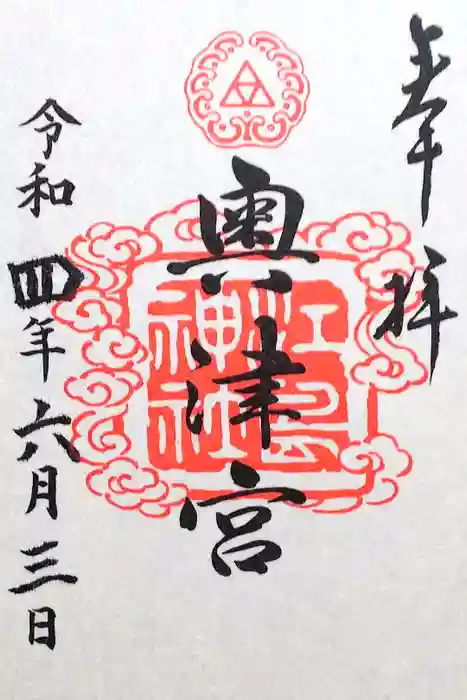 奉拝
奥津宮
江島
神社
令和四年六月三日